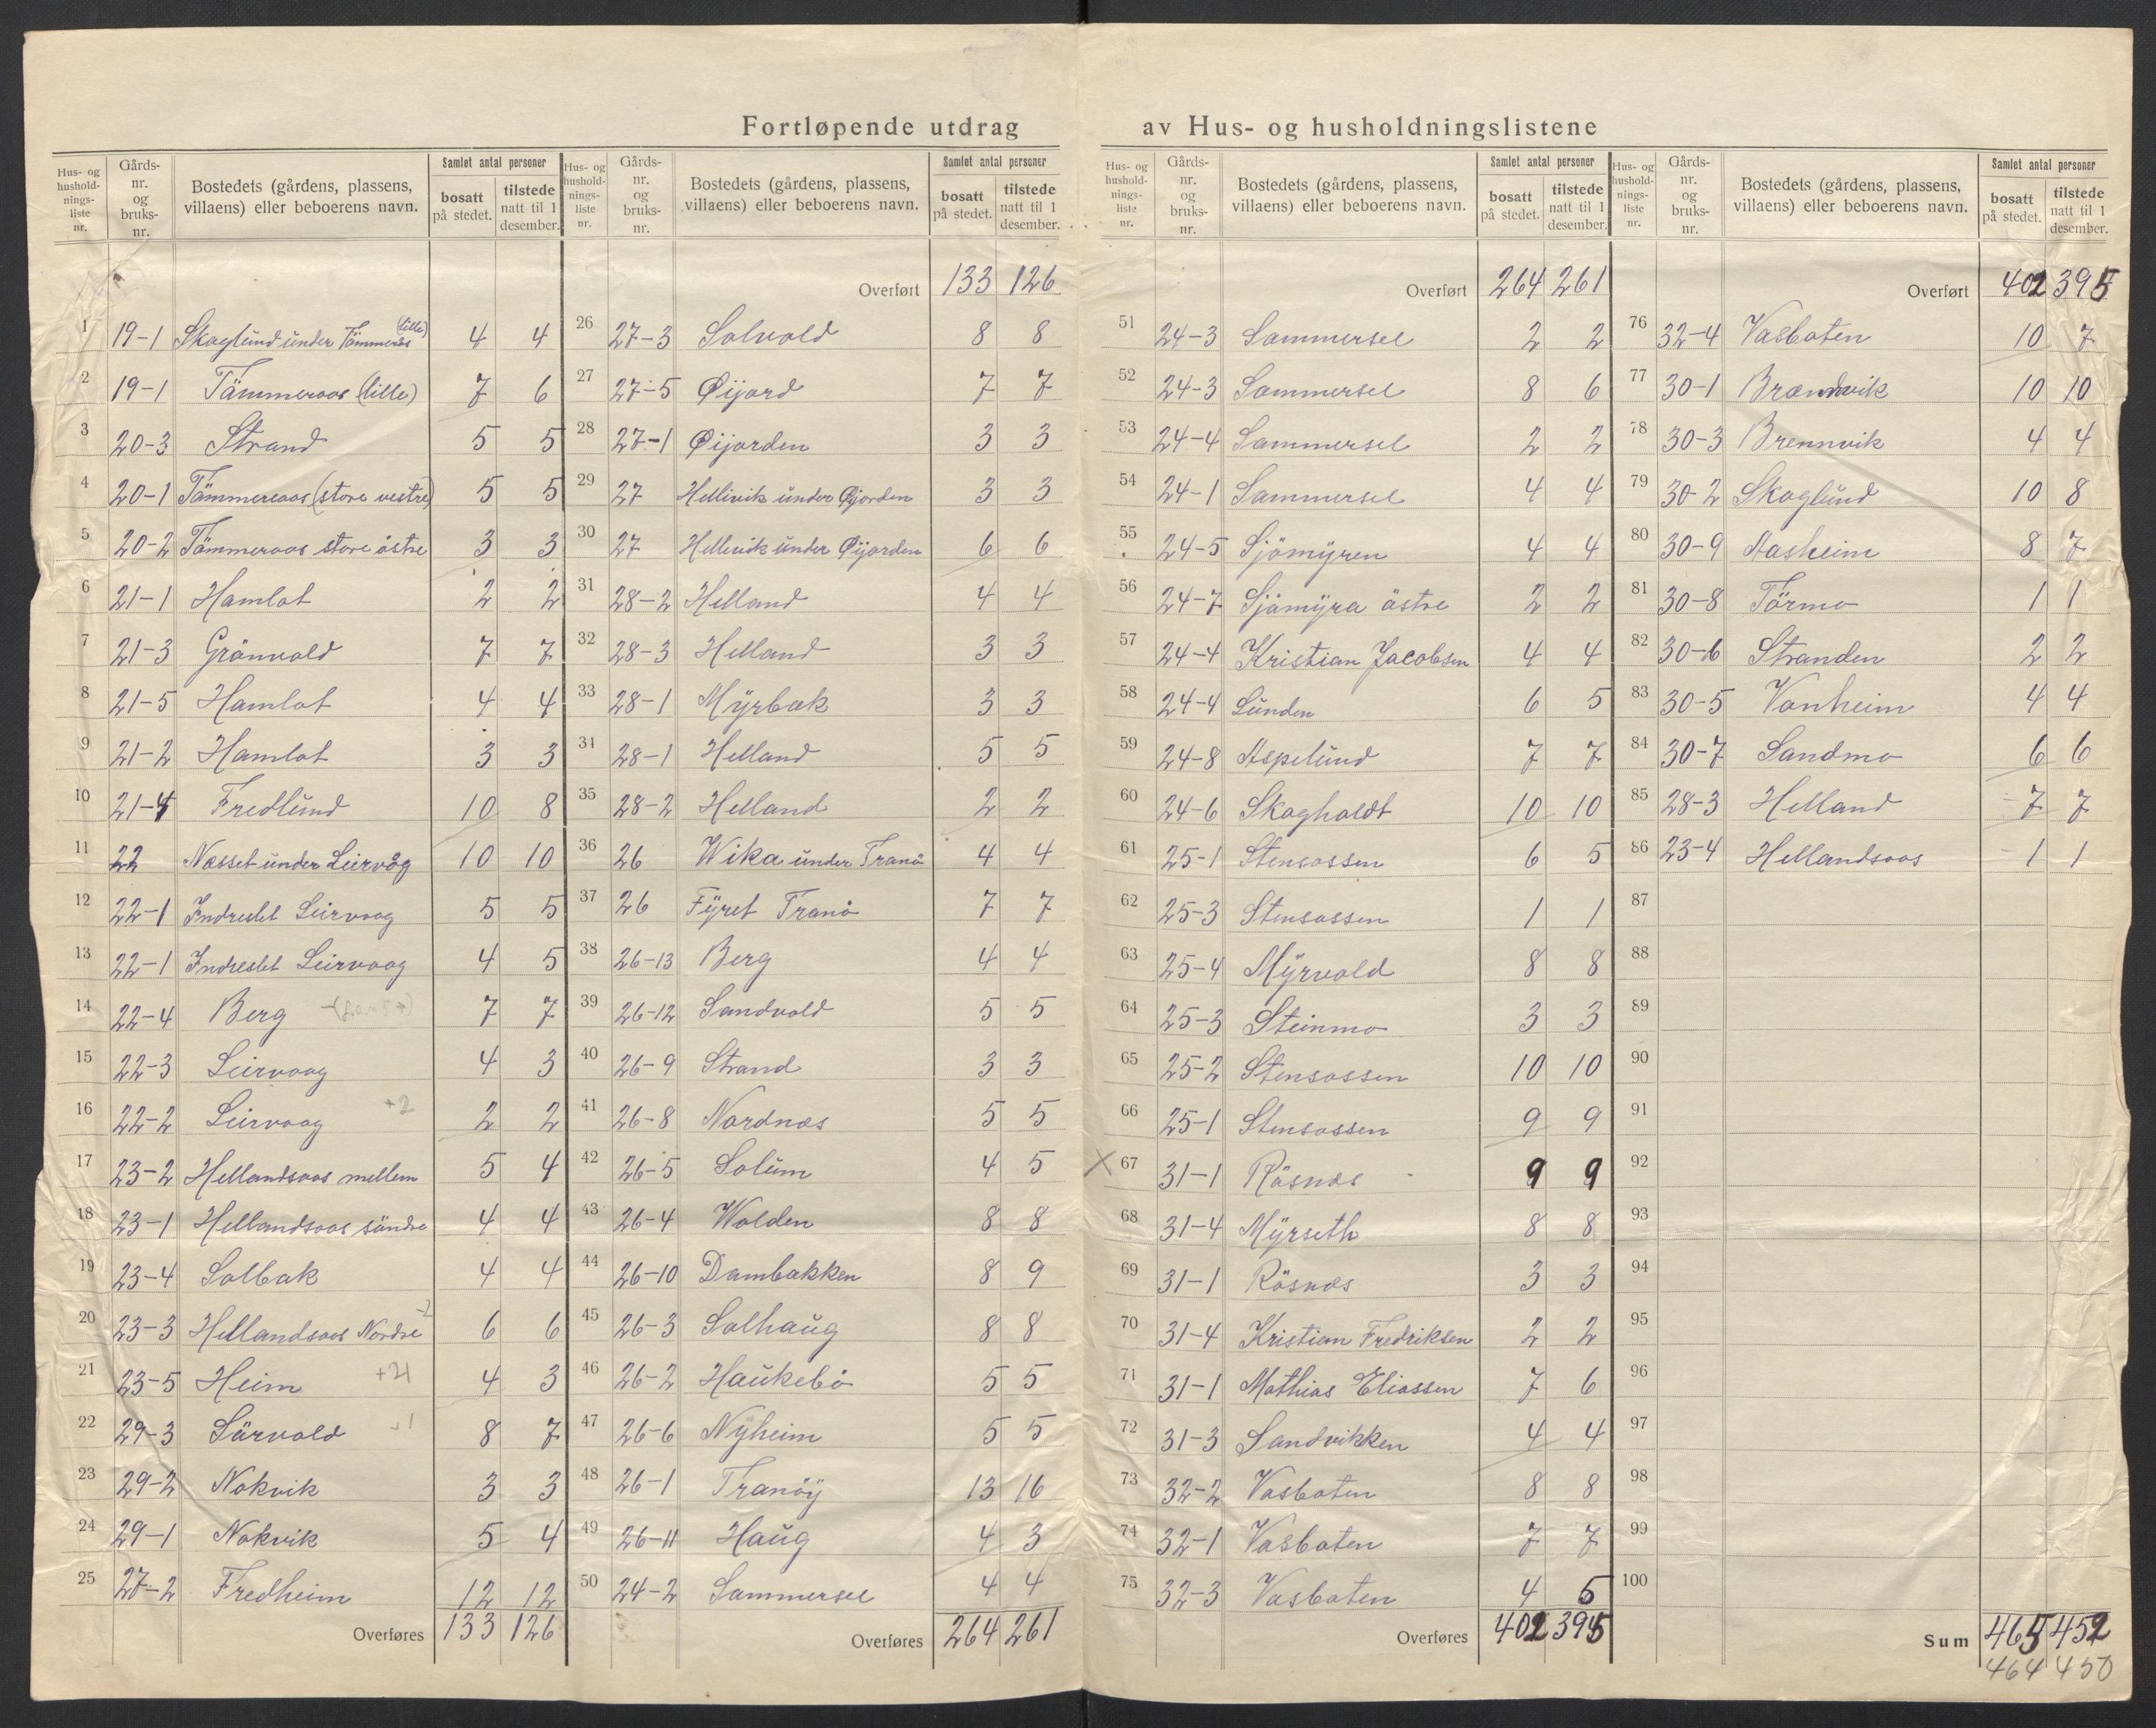 Fortløpende utdrag av Hus- og husholdningslistene
Hus- og hushold-nings-liste nr. | Gårds-nr. og bruks-nr. | Bostedets (gårdens, plassens, villaens) eller beboerens navn. | Samlet antal personer | bosatt på stedet. | tilstede natt til 1 desember.
1 19-1 Skoglund under Tømmeraas (lille) 4 4
2 19-1 Tømmeraas (lille) 7 6
3 20-3 Strand 5 5
4 20-1 Tømmeraas (store vestre) 5 5
5 20-2 Tømmeraas store østre 3 3
6 21-1 Hamlot 2 2
7 21-3 Grönvold 7 7
8 21-5 Hamlot 4 4
9 21-2 Hamlot 3 3
10 21-4 Fredlund 10 8
11 22 Næsset under Leirvåg 10 10
12 22-1 Indrestet Leirvaag 5 5
13 22-1 Indrestet Leirvaag 4 5
14 22-4 Berg 7 7
15 22-3 Leirvaag 4 3
16 22-2 Leirvaag +2 2 2
17 23-2 Hellandsaas mellem 5 4
18 23-1 Hellandsaas söndre 4 4
19 23-4 Solbak 4 4
20 23-3 Hellandsaas Nordre -2 6 6
21 23-5 Heim 4 3
22 29-3 Sörvold 8 7
23 29-2 Nokvik 3 3
24 29-1 Nokvik 5 4
25 27-2 Fredheim 12 12
Overføres 133 126
Hus- og hushold-nings-liste nr. | Gårds-nr. og bruks-nr. | Bostedets (gårdens, plassens, villaens) eller beboerens navn. | Samlet antal personer | bosatt på stedet. | tilstede natt til 1 desember.
Overført 133 126
26 27-3 Solvold 8 8
27 27-5 Øijord 7 7
28 27-1 Øijorden 3 3
29 27 Hellevik under Øijorden 3 3
30 27 Hellevik under Øijorden 6 6
31 28-2 Helland 4 4
32 28-3 Helland 3 3
33 28-1 Myrbak 3 3
34 28-1 Helland 5 5
35 28-2 Helland 2 2
36 26 Wika under Tranö 4 4
37 26 Fyret Tranö 7 7
38 26-13 Berg 4 4
39 26-12 Sandvold 5 5
40 26-9 Strand 3 3
41 26-8 Nordnæs 5 5
42 26-5 Solum 4 5
43 26-4 Wolden 8 8
44 26-10 Dambakken 8 9
45 26-3 Solhaug 8 8
46 26-2 Haukebö 5 5
47 26-6 Nyheim 5 5
48 26-1 Tranöy 13 16
49 26-11 Haug 4 3
50 24-2 Sommersel 4 4
Overføres 264 261
Hus- og hushold-nings-liste nr. | Gårds-nr. og bruks-nr. | Bostedets (gårdens, plassens, villaens) eller beboerens navn. | Samlet antal personer | bosatt på stedet. | tilstede natt til 1 desember.
Overført 264 261
51 24-3 Sommersel 2 2
52 24-3 Sommersel 8 6
53 24-4 Sommersel 2 2
54 24-1 Sommersel 4 4
55 24-5 Sjömyren 4 4
56 24-7 Sjömyra östre 2 2
57 24-4 Kristian Jacobsen 4 4
58 24-4 Lunden 6 5
59 24-8 Aspelund 7 7
60 24-6 Skogholdt 10 10
61 25-1 Stensossen 6 5
62 25-3 Stensossen 1 1
63 25-4 Myrvold 8 8
64 25-3 Steinmo 3 3
65 25-2 Stensossen 10 10
66 25-1 Stensossen 9 9
X 67 31-1 Rösnes 9 9
68 31-4 Myrseth 8 8
69 31-1 Rösnes 3 3
70 31-4 Kristian Fredriksen 2 2
71 31-1 Mathias Eliassen 7 6
72 31-3 Sandvikken 4 4
73 32-2 Vasboten 8 8
74 32-1 Vasboten 7 7
75 32-3 Vasboten 4 5
Overføres 402 395
Hus- og hushold-nings-liste nr. | Gårds-nr. og bruks-nr. | Bostedets (gårdens, plassens, villaens) eller beboerens navn. | Samlet antal personer | bosatt på stedet. | tilstede natt til 1 desember.
Overført 402 395
76 32-4 Vasboten 10 7
77 30-1 Brændvik 10 10
78 30-3 Brennvik 4 4
79 30-2 Skoglund 10 8
80 30-9 Aasheim 8 7
81 30-8 Törmo 1 1
82 30-6 Stranden 2 2
83 30-5 Vonheim 4 4
84 30-7 Sandmo 6 6
85 28-3 Helland 7 7
86 23-4 Hellandsaas 1 1
87
88
89
90
91
92
93
94
95
96
97
98
99
100
Sum 465 452
464 450